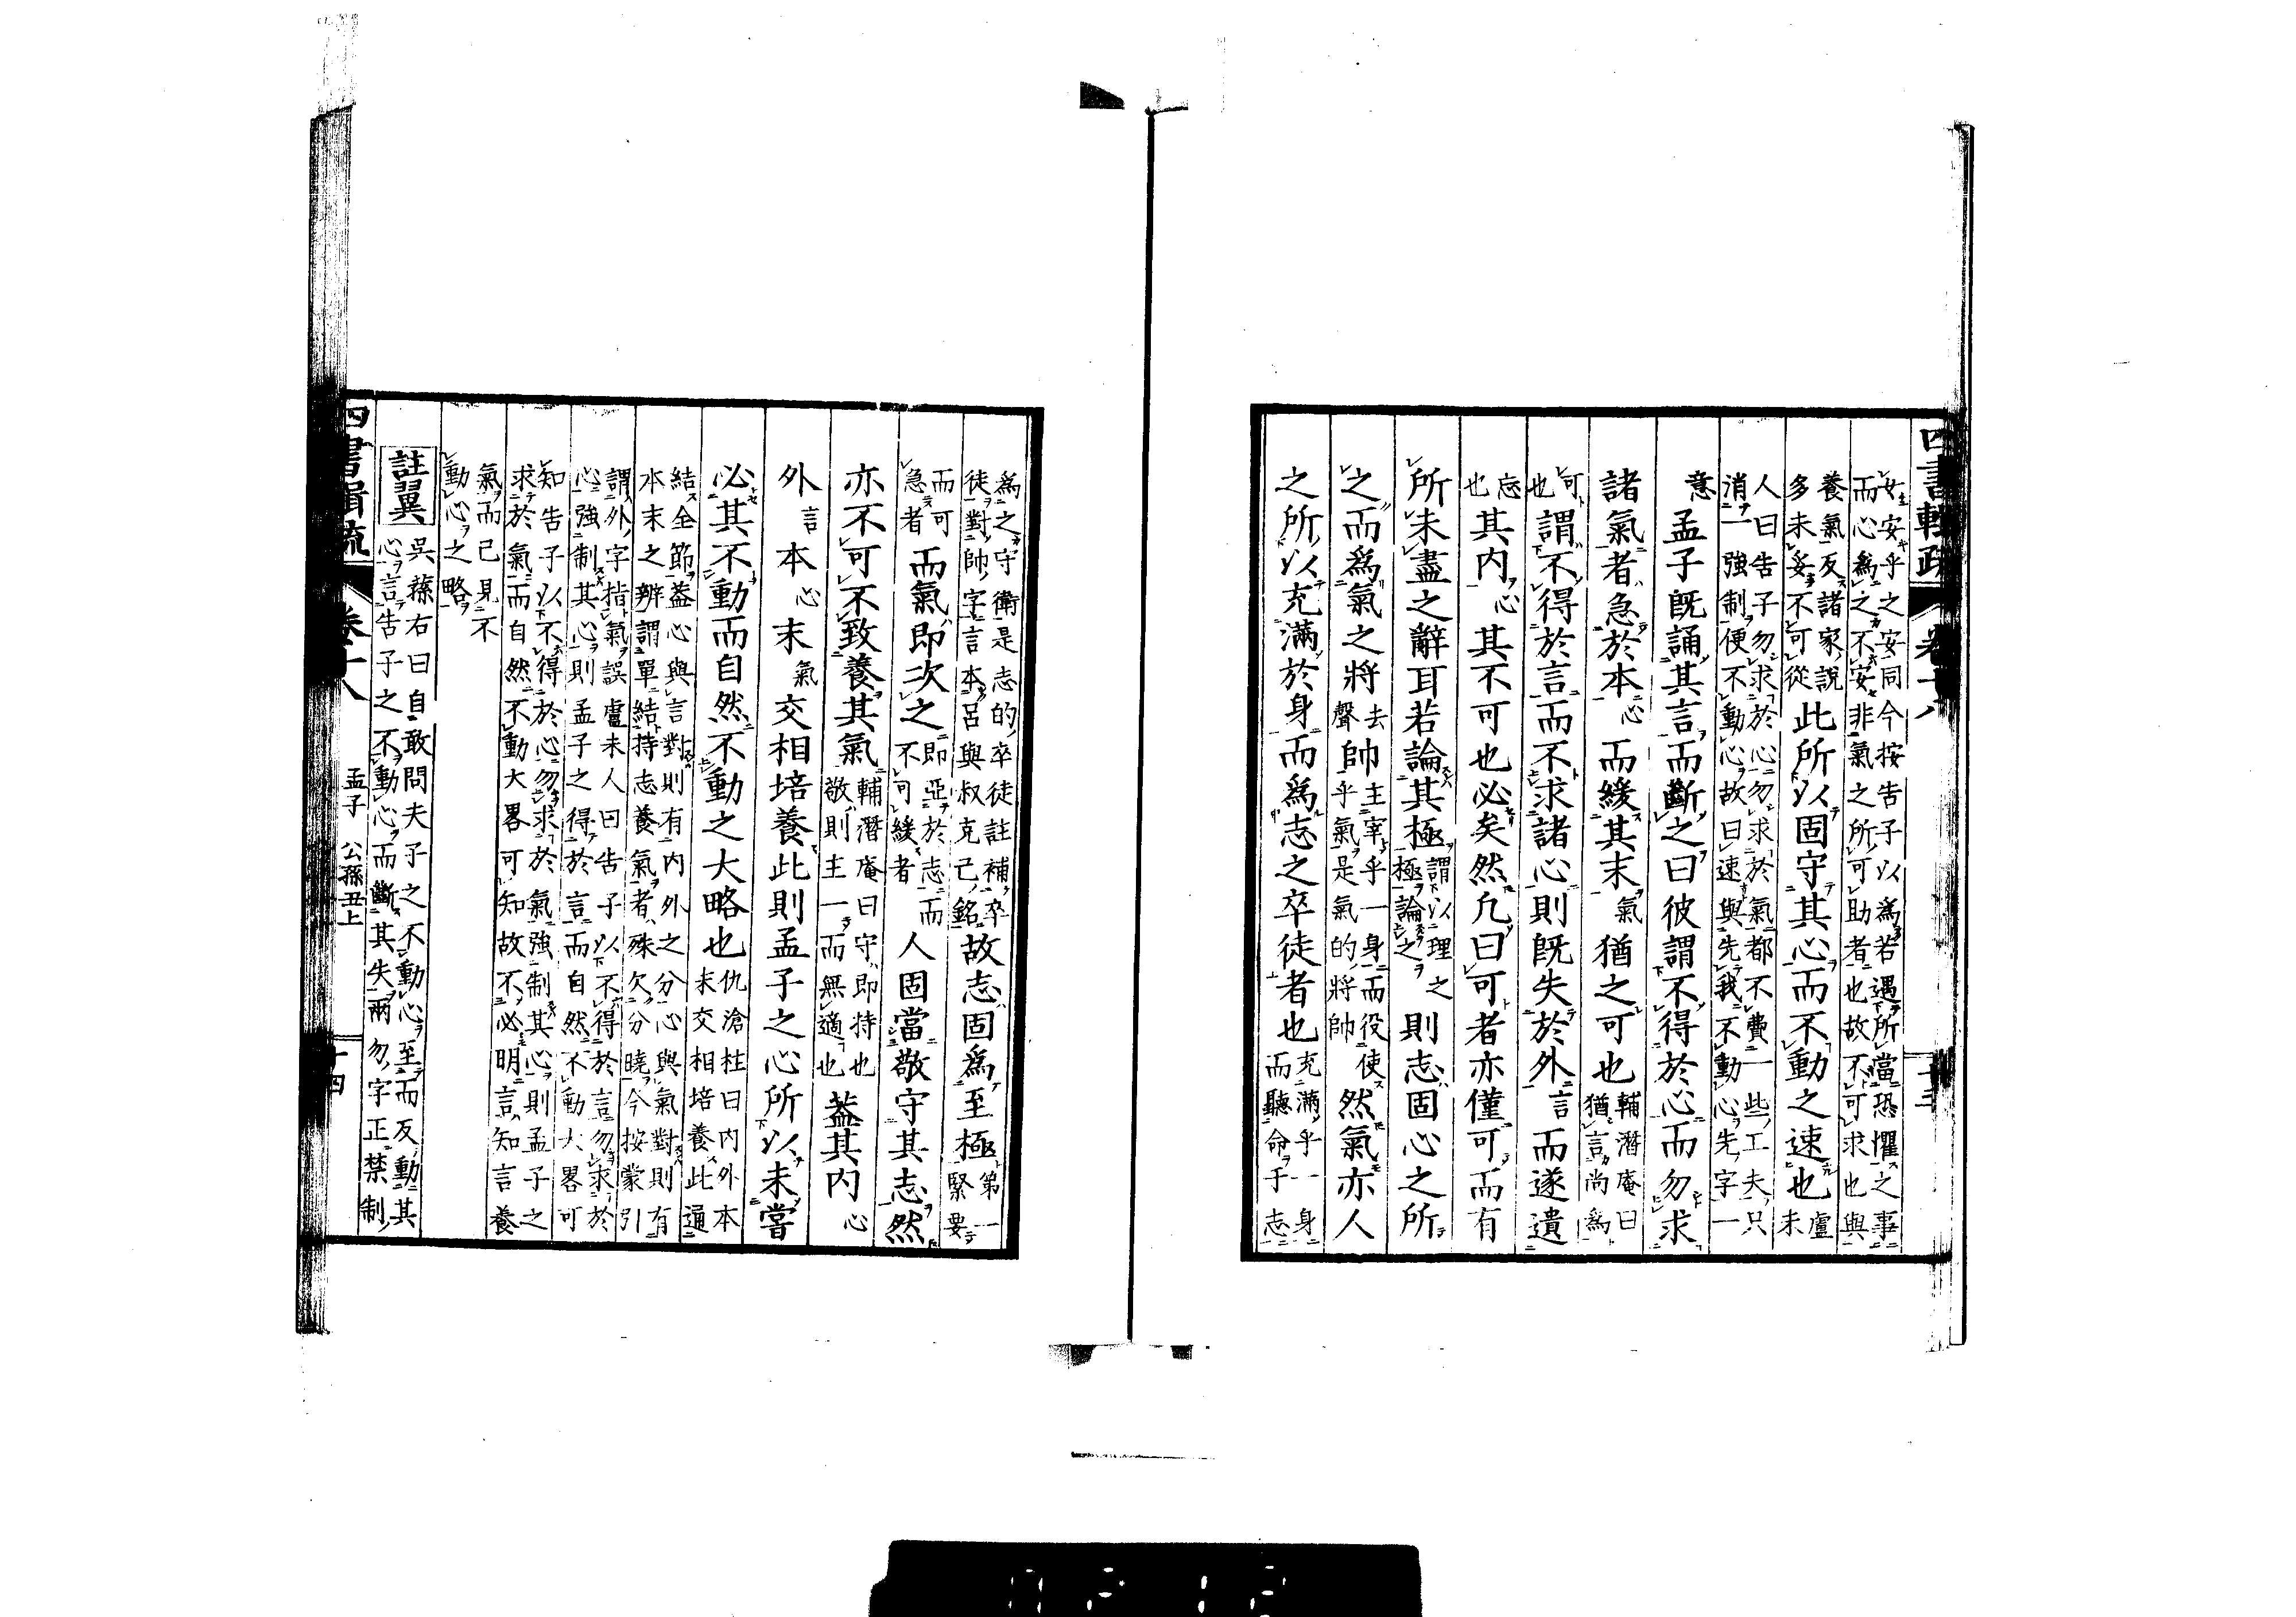 四書輯疏 卷十八
女安乎之安同今按告子以爲若遇所當恐懼之事
而心爲之不安非氣之所可助者也故不可求也與
養氣反諸家說
多未妥不可從
此所以固守其心而不動之速也
盧
未
人曰告子勿求於心勿求於氣都不費一些工夫只
消一強制便不動心故曰速與先我不動心先字一
意
孟子既誦其言而斷之曰彼謂不得於心而勿求
諸氣者急於本心而緩其末氣猶之可也
輔潛庵曰
猶言尚爲
可
也
謂不得於言而不求諸心則既失於外言而遂遺
忘
也
其內心其不可也必矣然凡曰可者亦僅可而有
所未盡之辭耳若論其極
謂以理之
極論之
則志固心之所
之而爲氣之將
去
聲
帥
主宰乎一身而役使
乎氣是氣的將帥
然氣亦人
之所以充滿於身而爲志之卒徒者也
充滿乎一身
而聽命于志
爲之守衛是志的卒徒註補卒
徒對帥字言本呂與叔克己銘
故志固爲至極
第一
緊要
而可
急者
而氣即次之
即亞於志而
不可緩者
人固當敬守其志然
亦不可不致養其氣
輔潛庵曰守即持也
敬則主一而無適也
蓋其內心
外言本心末氣交相培養此則孟子之心所以未嘗
必其不動而自然不動之大略也
仇滄柱曰內外本
末交相培養此通
結全節蓋心與言對則有內外之分心與氣對則有
本末之辨謂單結持志養氣者殊欠分曉今按蒙引
謂外字指氣誤盧未人曰告子以不得於言勿求於
心強制其心則孟子之得於言而自然不動大畧可
知告子以不得於心勿求於氣強制其心則孟子之
求於氣而自然不動大畧可知故不必明言知言養
氣而已見不
動心之略
註翼
吳蓀右曰自敢問夫子之不動心至而反動其
心言告子之不動心而斷其失兩勿字正禁制
四書輯疏 卷十八 孟子 公孫丑上 十四